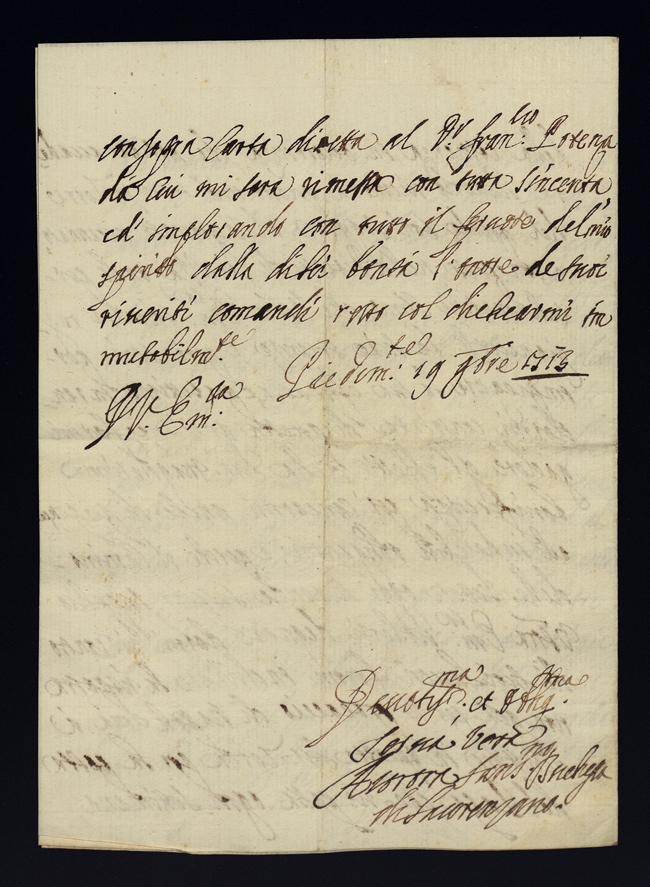 consegra Carta diretta al Sr. Franco.
da cui mi sara rimessa con tutta sincerità
ed' implorando con tutto il feruore del mio
spirito dalla di lei bontà l'onore de suoi
riueriti comandi resto col dichiarmi im
mutabilmte. Piedimte. 19 9bre 1713
D. V. Emza.
Deuotissma. et Obligma.
Serua Vera
Aurora San